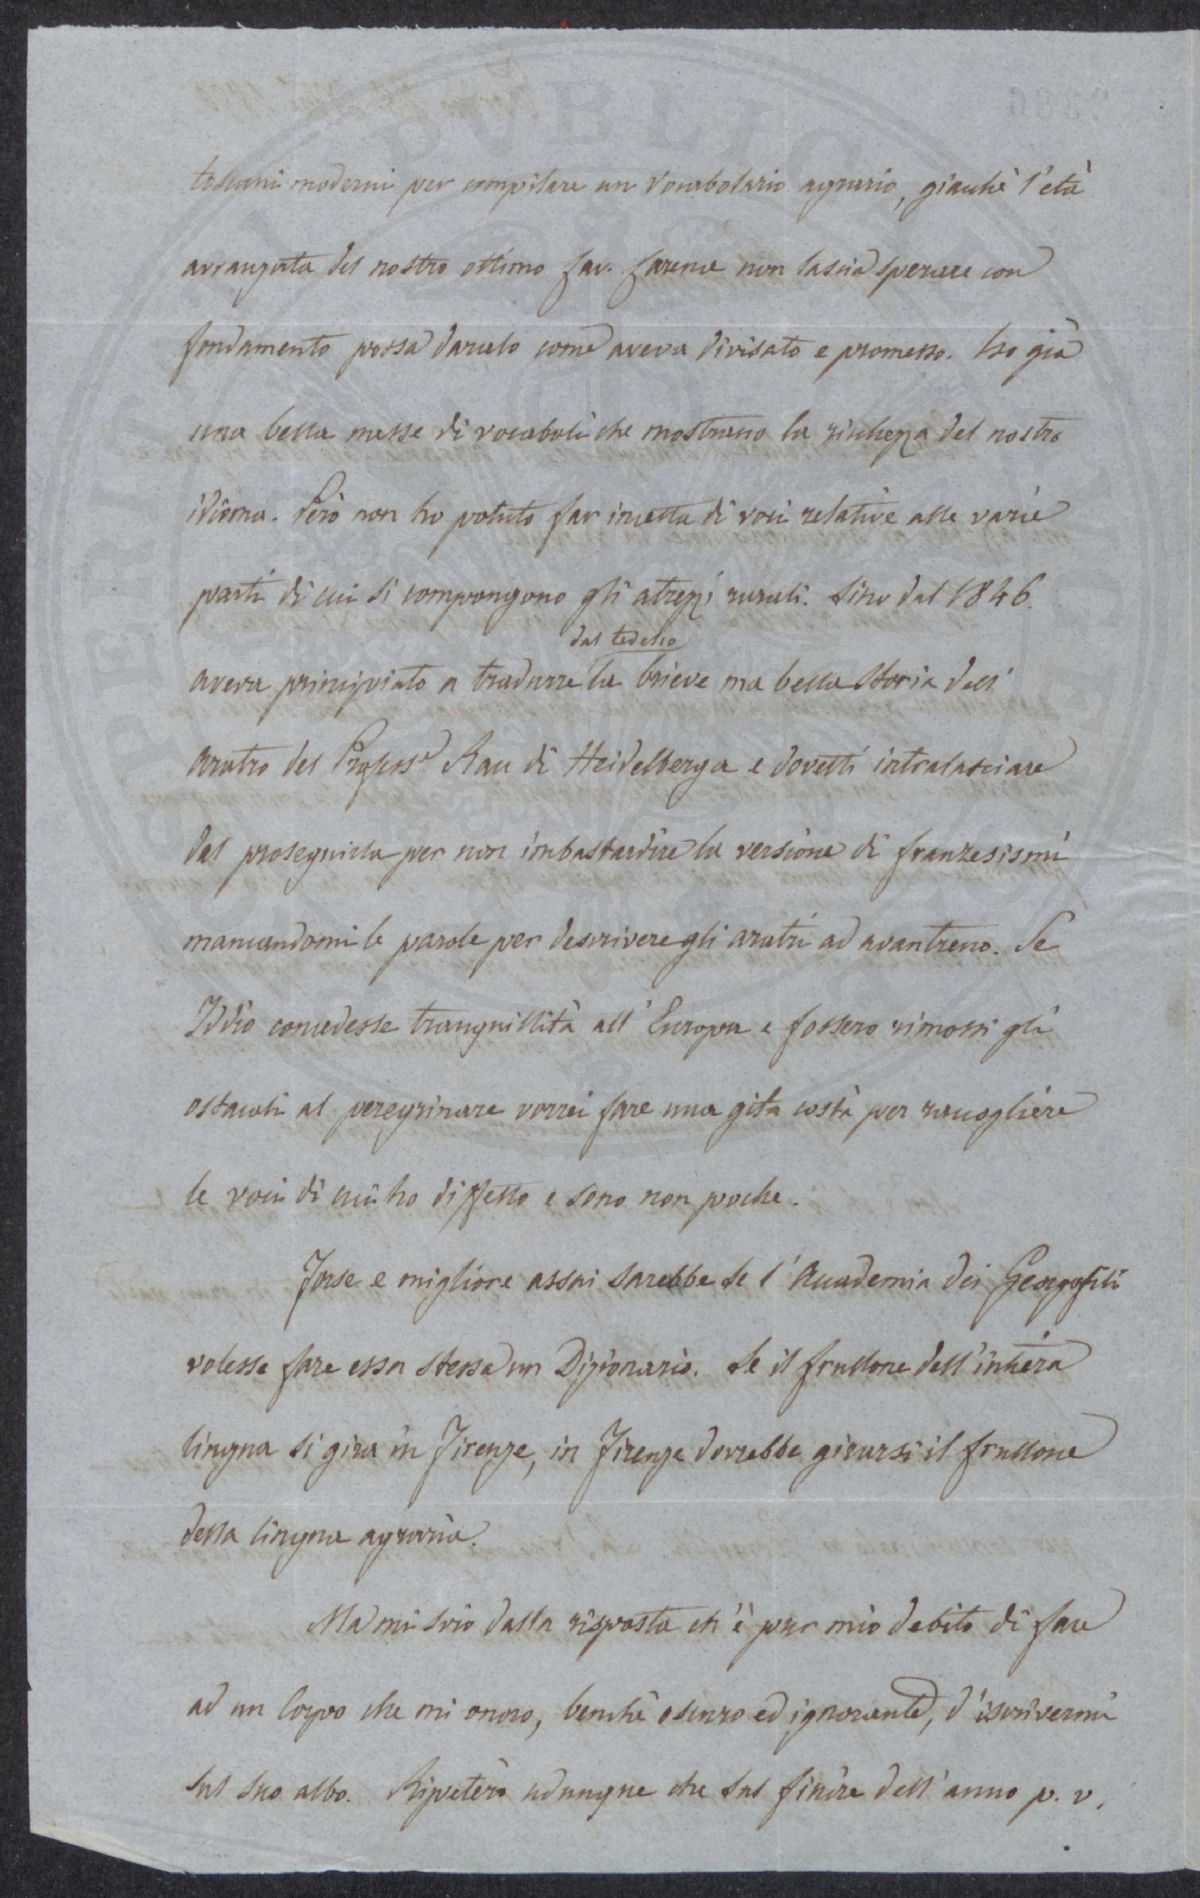 toscani moderni per compilare un vocabolario agrario, giacchè l'età
avvanzata del nostro ottimo Cav. Carena non lascia sperare con
fondamento possa darcelo come aveva divisato e promesso. Ho già
una bella messe di vocaboli che mostrano la richezza del nostro
idioma. Però non ho potuto far incetta di voci relative alle varie
parti di cui si compongono gli atrezzi rurali. Sino dal 1846.
dal tedesco
aveva principiato a tradurre la brieve ma bella storia dell'
aratro del Profess.r Rau di Heidelberga e dovetti intralasciare
dal proseguirla per non imbastardire la versione di franzesismi
mancandomi le parole per descrivere gli aratri ad avantreno. Se
Iddio concedesse tranquillità all'Europa e fossero rimossi gli
ostacoli al peregrinare vorrei fare una gita costà per raccogliere
le voci di cui ho diffetto e sono non poche.
Forse e migliore assai sarebbe se l'Accademia dei Georgofili
volesse fare essa stessa un Dizionario. Se il frullone dell'intiera
lingua si gira in Firenze, in Firenze dovrebbe girarsi il frullone
della lingua agraria.
Ma mi svio dalla risposta ch'è pur mio debito di fare
ad un Corpo che mi onorò, benchè oscuro ed ignorante, d'iscrivermi
sul suo albo. Ripeterò adunque che sul finire dell'anno p. v.